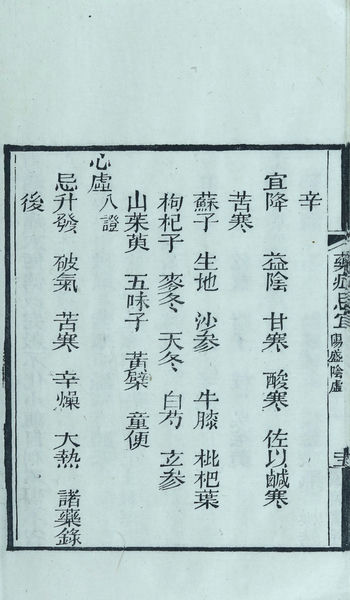 藥症忌宜 陽盛陰虛
辛
宜降 益陰 甘寒 酸寒 佐以鹹寒
苦寒
蘇子 生地 沙參 牛膝 枇杷葉
枸杞子 麥冬 天冬 白芍 玄參
山茱萸 五味子 黃檗 童便
心虛八證
忌升發 破氣 苦寒 辛燥 大熱 諸藥錄
後